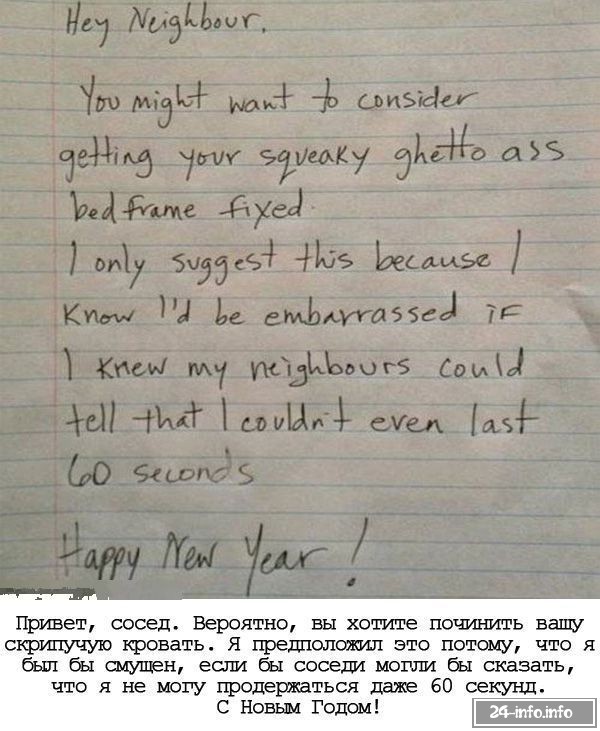 Hey Neighbour,
You might want to consider
getting your squeaky ghetto ass
bedframe fixed.
I only suggest this because I
know I'd be embarrassed if
I knew my neighbours could
tell that I couldn't even last
60 seconds
Happy New Year!
Привет, сосед. Вероятно, вы хотите починить вашу
скрипучую кровать. Я предположил это потому, что я
был бы смущен, если бы соседи могли бы сказать,
что я не могу продержаться даже 60 секунд.
С Новым Годом!
24-info.info